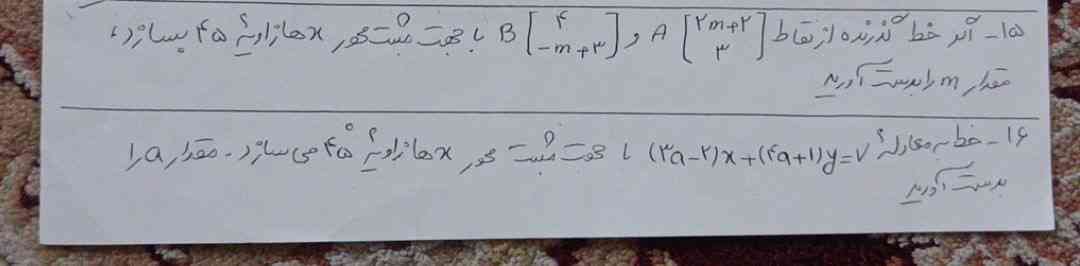 ۱۵- اگر خط گذرنده از نقاط A [۲m+۲ ۳] و B [۴ -m+۳] با جهت مثبت محور xها زاویهٔ ۴۵° بسازد،
مقدار m را بدست آورید
۱۶- خط به معادلهٔ (۳a-۲)x+(۴a+۱)y=۷ با جهت مثبت محور xها زاویهٔ ۴۵° می سازد. مقدار a را
بدست آورید